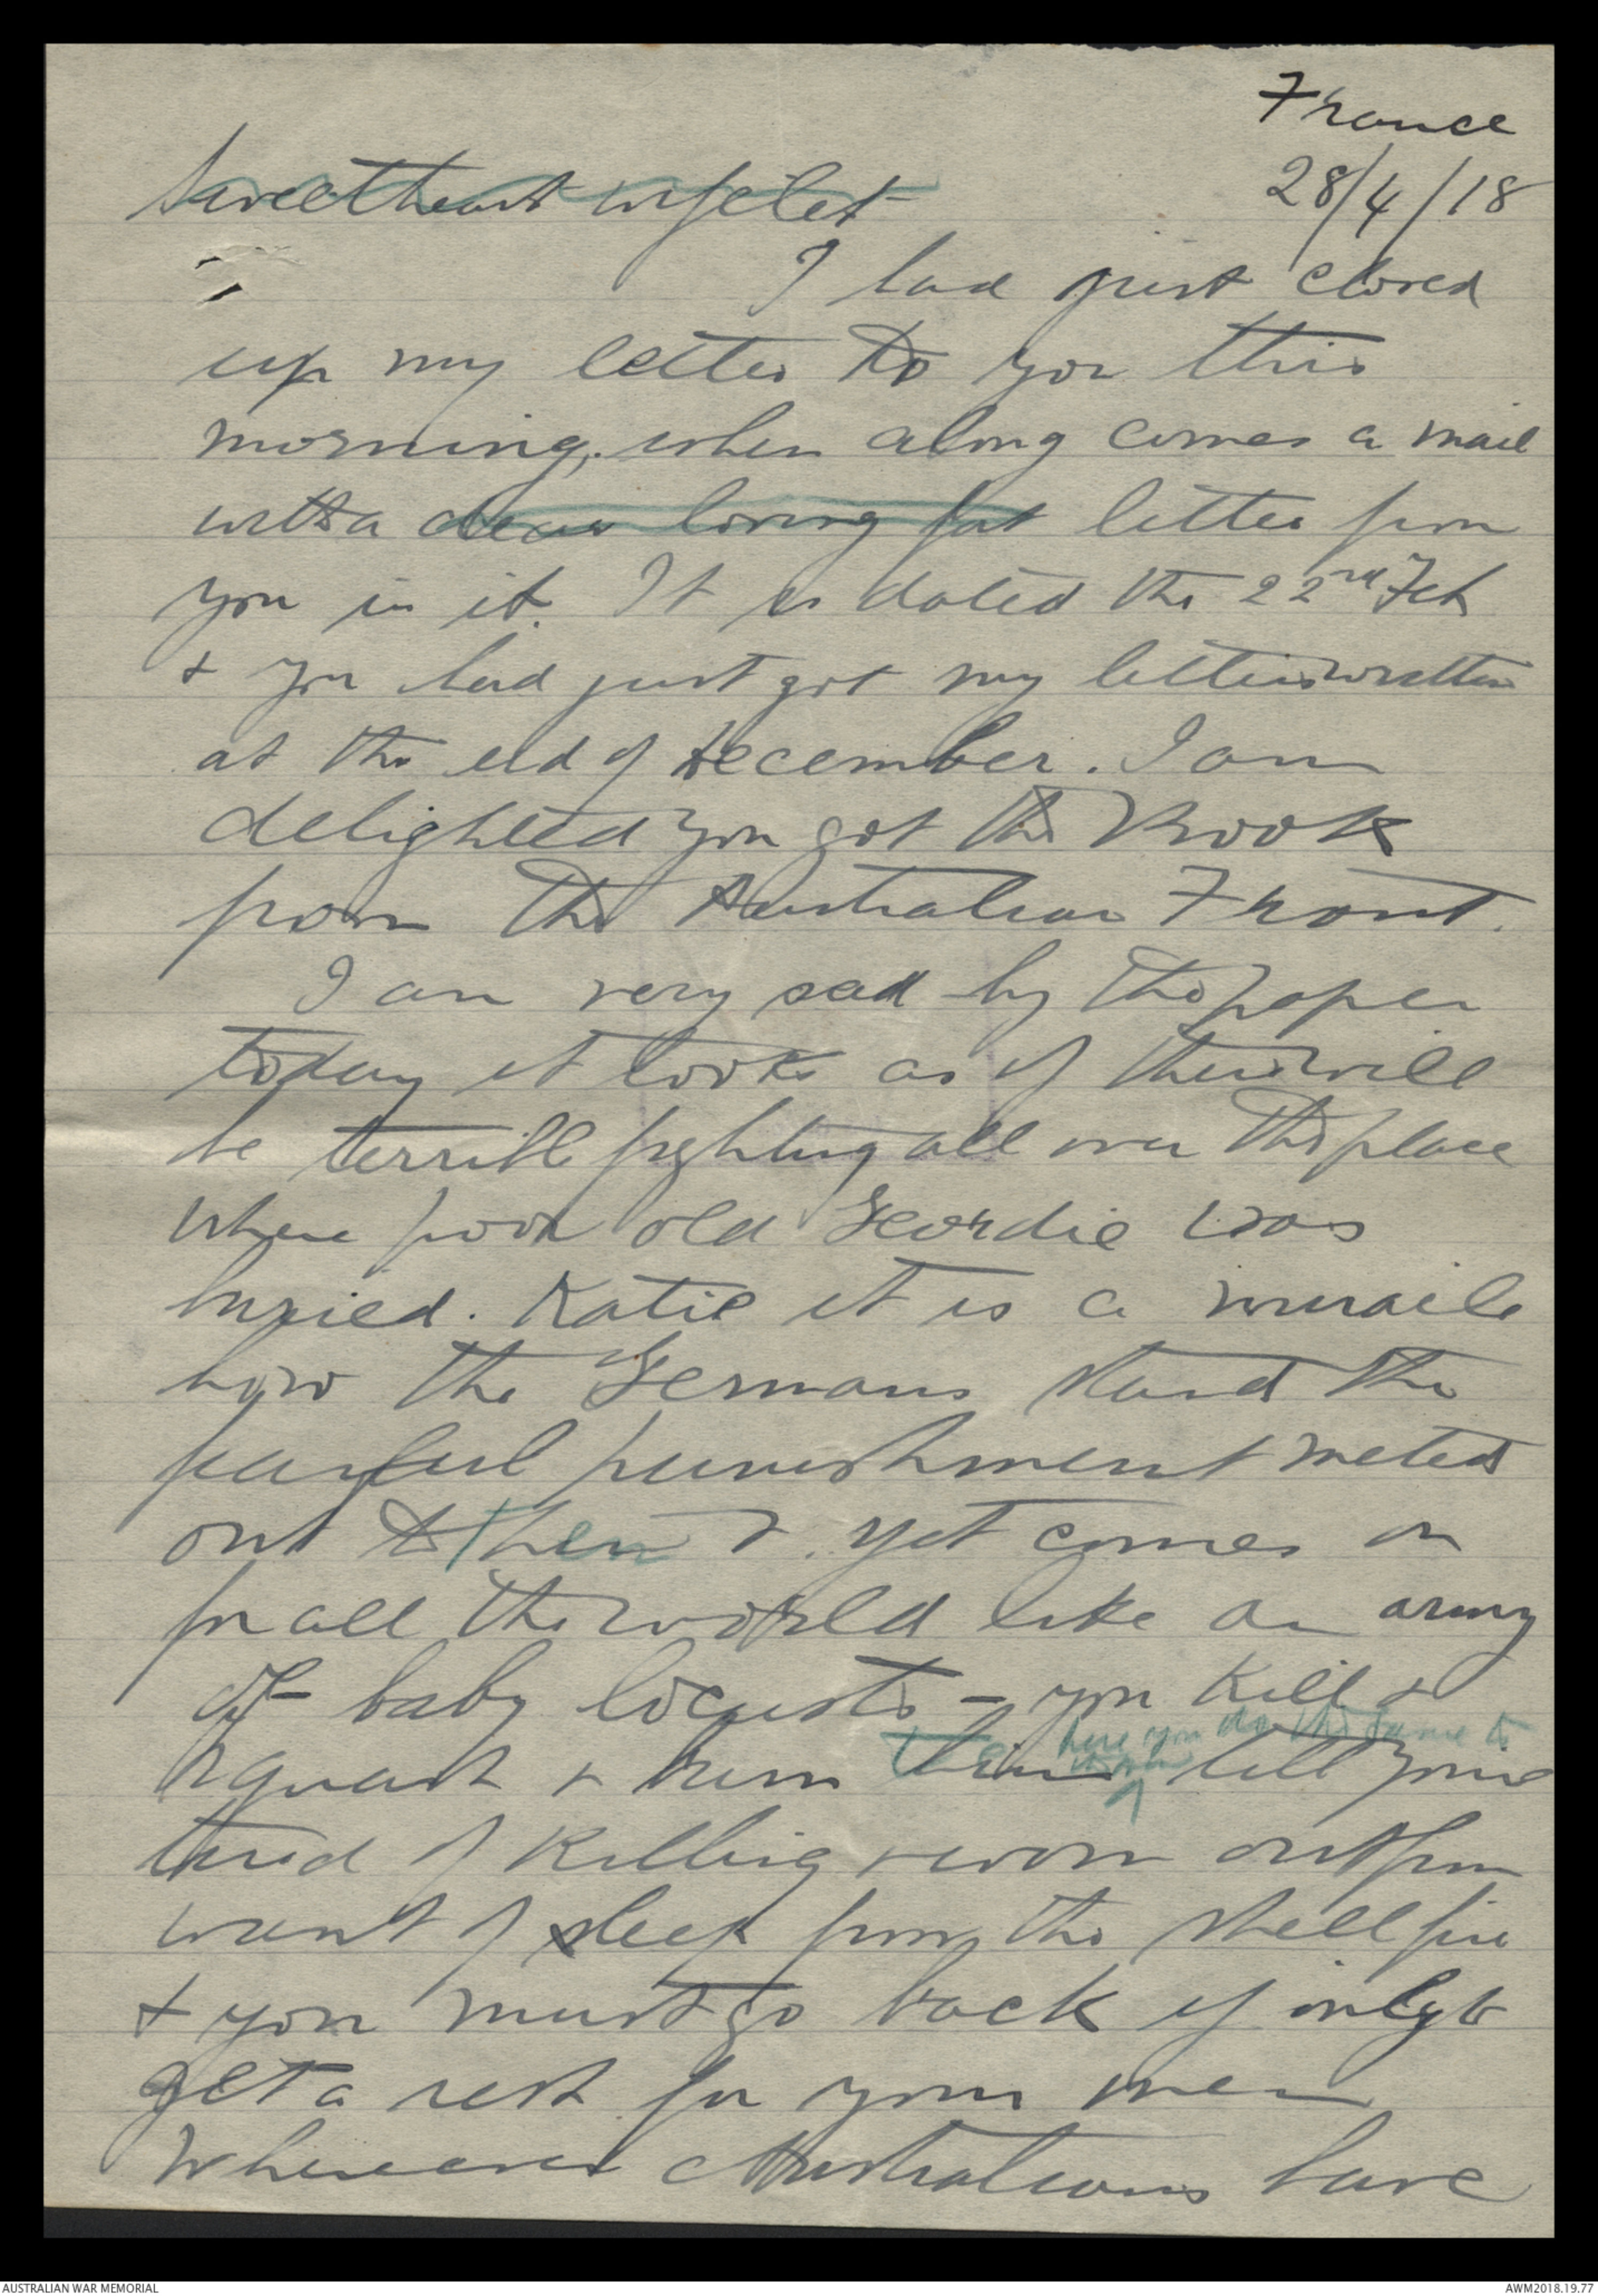 France
28/4/18
Sweetheart wifelet
I had just closed
up my letter to you this
morning, when along comes a mail
with a dear loving fat letter from
you in it. It is dated the 22nd Feb
& you had just got my letters written
at the end of December. I am
delighted you got the Book
from the Australian Front.
I am very sad by the paper
today it looks as if there will
be terrible fighting all over the place
where poor old Geordie was
buried. Katie it is a miracle
how the Germans stand the
fearful punishment meted
out to them & yet comes on
for all the world like an army
of baby locusts - you kill &
here you do the same to
squash & burn them till your
tired of killing & worn out from
want of sleep from the shell fire
& you must go back if only to
get a rest for your men
Whenever Australians have
AUSTRALIAN WAR MEMORIAL
AWM2018.19.77